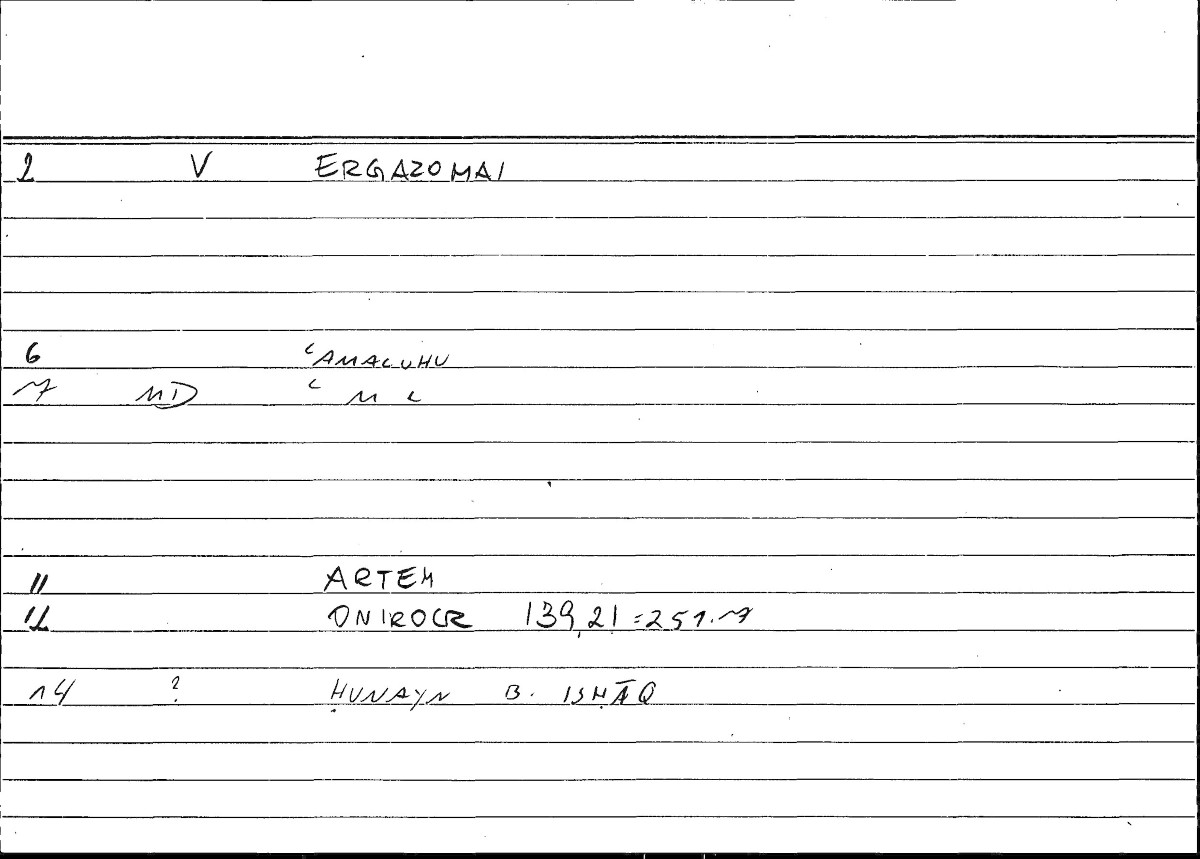 2 V ERGAZOMAI
6 ʿAMALUHU
7 MD ʿ M L
11 ARTEM
12 ONIROCR 139,21 = 251.7
14 ? ḤUNAYN B. ISḤĀQ